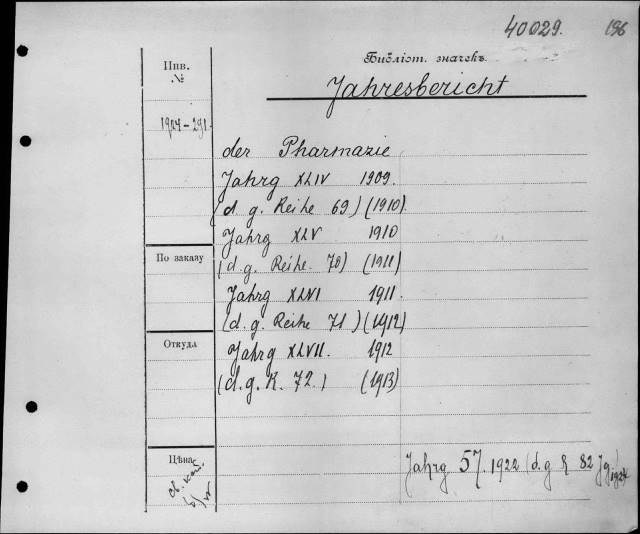 40029. 196
Инв.
№
Библіот. значекъ
Jahresbericht
1904-291
der Pharmazie
Jahrg XLIV 1909.
(d. g. Reihe 69) (1910)
Jahrg XLV 1910
По заказу
(d. g. Reihe. 70) (1911)
Jahrg XLVI 1911.
(d. g. Reihe 71) (1912)
Откуда
Jahrg XLVII. 1912
(d. g. R. 72.) (1913)
Цѣна
Jahrg 57. 1922 (d. g R 82 Jg) 1924